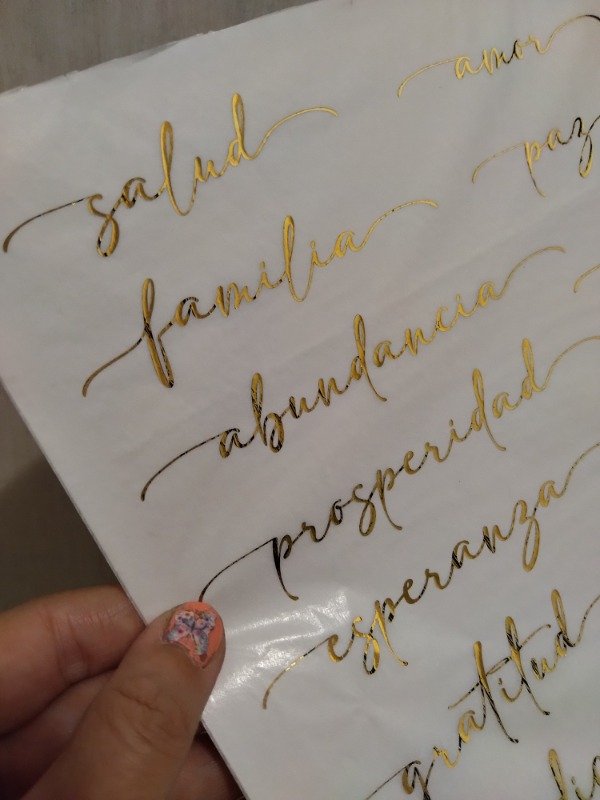 salud
amor
paz
familia
abundancia
prosperidad
esperanza
gratitud